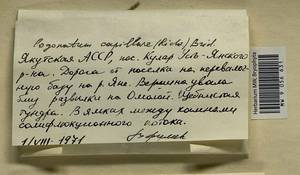 Pogonatum capillare (Richs) Brid
Якутская АССР, пос. Кулар Усть-Янского
р-на. Дорога от поселка на перевалоч-
ную базу на р. Яне. Вершина увала
близ развилки на Омолой. Щебнистая
тундра. В ямках между комнями
солифлюкционного потока.
1/VIII-1971
Herbarium MW, Bryophyta